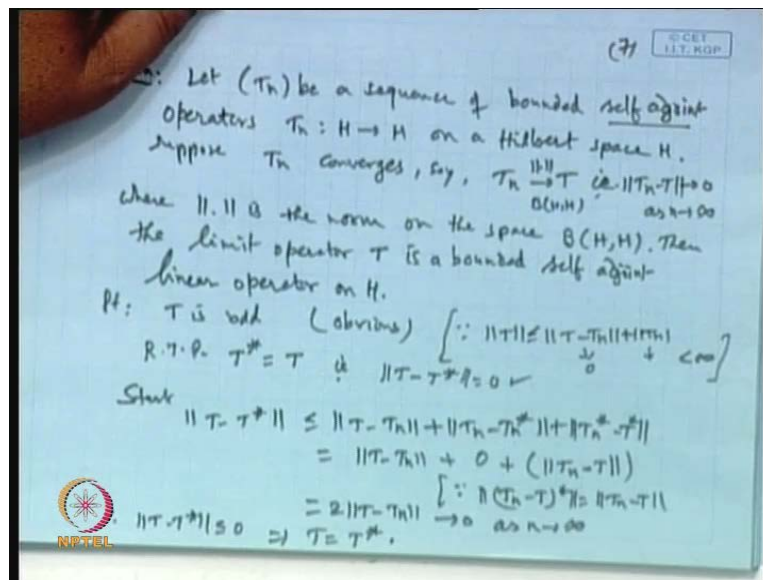 (7)
© CET
I.I.T. KGP
: Let (Tn) be a sequence of bounded self adjoint
operators Tn : H → H on a Hilbert space H.
suppose Tn converges, say, Tn →^{||.||}_{B(H,H)} T i.e. ||Tn-T|| → 0
as n→∞
where ||.|| is the norm on the space B(H,H). Then
the limit operator T is a bounded self adjoint
linear operator on H.
Pf: T is bdd (obvious) [∵ ||T|| ≤ ||T-Tn||+||Tn|| < ∞]
↓ 0 ↓
R.T.P. T* = T ie ||T-T*||=0 ✓
Start
||T-T*|| ≤ ||T-Tn||+||Tn-Tn*||+||Tn*-T*||
= ||T-Tn|| + 0 + (||Tn-T||)
[∵ ||(Tn-T)*||= ||Tn-T||
= 2||T-Tn|| → 0 as n→∞
∴ ||T-T*|| ≤ 0 ⇒ T = T*.
NPTEL